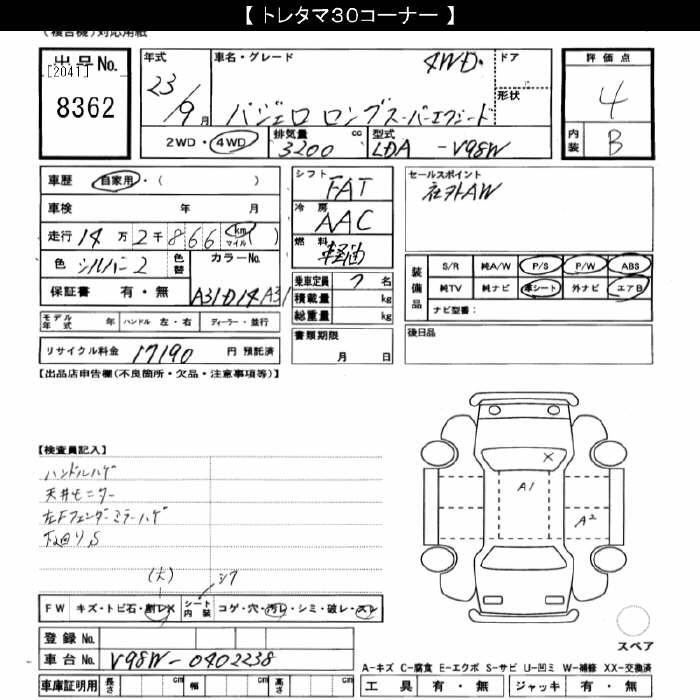 【 トレタマ30コーナー 】
(複合機)対応用紙
出品No.
[2041]
8362
年式
23/9月
車名・グレード
4WD.
パジェロ ロングスーパーエクシード
ドア
形状
2WD・4WD
排気量 3200 cc
型式 LDA - V98W
評価点
4
内装 B
車歴 自家用・( )
車検 年 月
走行 14万2千866 km マイル ( )
色 シルバー2 色替
カラーNo. A31D14A31
保証書 有・無
モデル年式 年 ハンドル 左・右 ディーラー・並行
リサイクル料金 17190 円 預託済
シフト FAT
冷房 AAC
燃料 軽油
乗車定員 7 名
積載量 kg
総重量 kg
書類期限
月 日
セールスポイント
社外AW
装備品
S/R 純A/W P/S P/W ABS
純TV 純ナビ 革シート 外ナビ エアB
ナビ型番:
後日品
【出品店申告欄(不良箇所・欠品・注意事項等)】
【検査員記入】
ハンドルハゲ
天井モニター
左Fフェンダーミラーハゲ
下廻りS
(大)
シワ
FW キズ・トビ石・割レX
シート内装 コゲ・穴・汚レ・シミ・破レ・スレ
登録No.
車台No. V98W-0402238
車庫証明用 長さ cm 幅 cm 高さ cm
X
A1
A2
スペア
A-キズ C-腐食 E-エクボ S-サビ U-凹ミ W-補修 XX-交換済
工具 有・無 ジャッキ 有・無